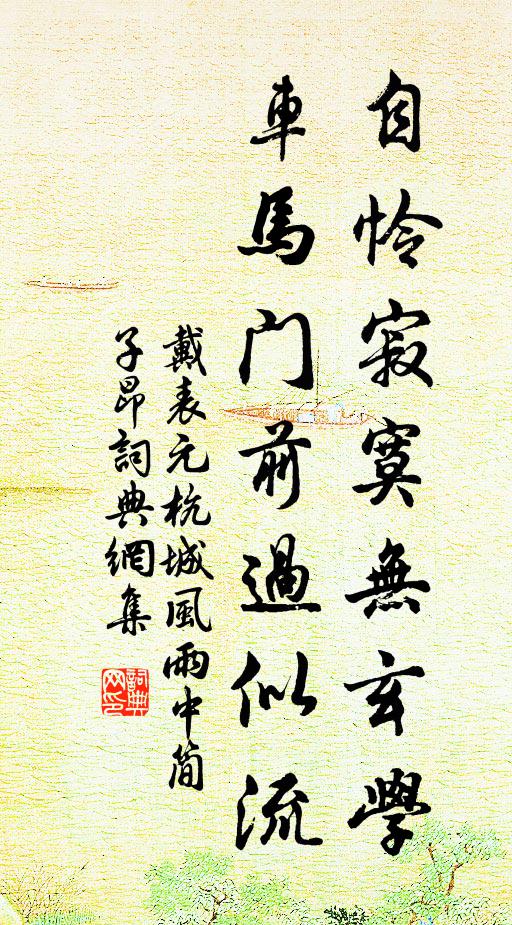 自怜寂寞無玄學
車馬门前過似流
戴表元杭城風雨中简
子昂詞典網集
詞典网印